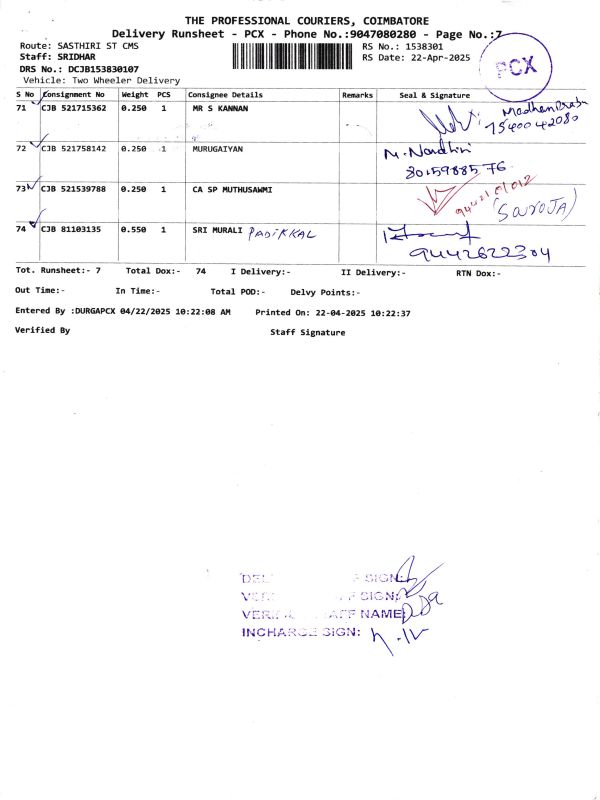 THE PROFESSIONAL COURIERS, COIMBATORE
Delivery Runsheet - PCX - Phone No.:9047080280 - Page No.:7
Route: SASTHIRI ST CMS
RS No.: 1538301
Staff: SRIDHAR
RS Date: 22-Apr-2025
DRS No.: DCJB153830107
Vehicle: Two Wheeler Delivery
PCX
S No Consignment No Weight PCS Consignee Details Remarks Seal & Signature
71 CJB 521715362 0.250 1 MR S KANNAN
Madhan Prabu
7540042080
72 CJB 521758142 0.250 1 MURUGAIYAN
M. Nandhini
8015988576
73 CJB 521539788 0.250 1 CA SP MUTHUSAWMI
(SaroJA)
74 CJB 81103135 0.550 1 SRI MURALI PADIKKAL
9442622304
Tot. Runsheet:- 7 Total Dox:- 74 I Delivery:- II Delivery:- RTN Dox:-
Out Time:- In Time:- Total POD:- Delvy Points:-
Entered By :DURGAPCX 04/22/2025 10:22:08 AM Printed On: 22-04-2025 10:22:37
Verified By Staff Signature
SIGN:
SIGN:
STAFF NAME:
INCHARGE SIGN: